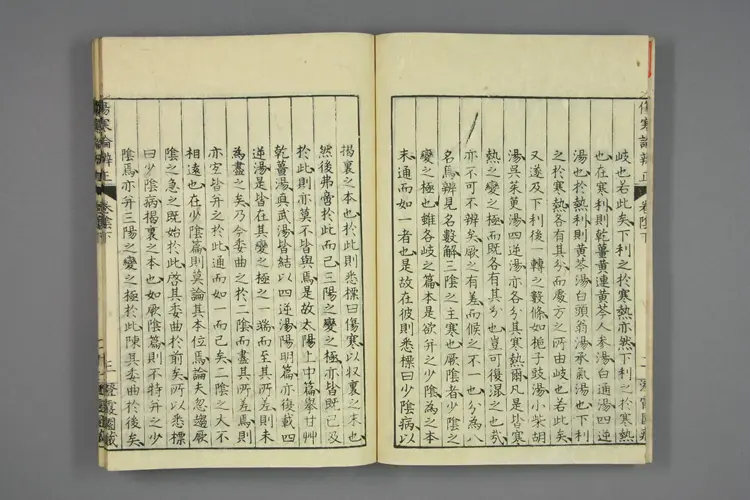 傷寒論辨正
卷陰下
岐也若此矣下利之於寒熱亦然下利之於寒熱
也在寒利則乾薑黃連黃芩人參湯白通湯四逆
湯也於熱利則黃芩湯白頭翁湯承氣湯也下利
之於寒熱各有其分而處方之所由岐也若此矣
又遂及下利後一轉之數條如梔子豉湯小柴胡
湯吳茱萸湯四逆湯亦各分其寒熱爾凡是皆寒
熱之變之極也而既各有其分也豈可復混之也哉
亦不可不辨矣厥之有差而候之不一也分為八
名焉辨見名數解三陰之主寒也厥陰者少陰之
變之極也雖各岐之篇本是欲并之少陰為之本
末通而如一者也是故在彼則悉標曰少陰病以
揭裏之本也於此則悉標曰傷寒以収裏之末也
然後弗啻於此而已三陽之變之極亦皆既已及
於此則亦莫不皆與焉是故太陽上中篇舉甘艸
乾薑湯真武湯皆結以四逆湯陽明篇亦復載四
逆湯是皆在其變之極之一端而至其所差則未
為盡之矣乃今委曲之於二陰而盡其所差焉則
亦宜皆并之於此通而如一而已矣二陰之大不
相遠也在少陰篇則莫論其本位焉論夫忽遽厥
陰之急之既始於此啓其委曲於前矣所以悉標
曰少陰病揭裏之本也如厥陰篇則不特并之少
陰焉亦并三陽之變之極於此陳其委曲於後矣
傷寒論辨正
卷陰下